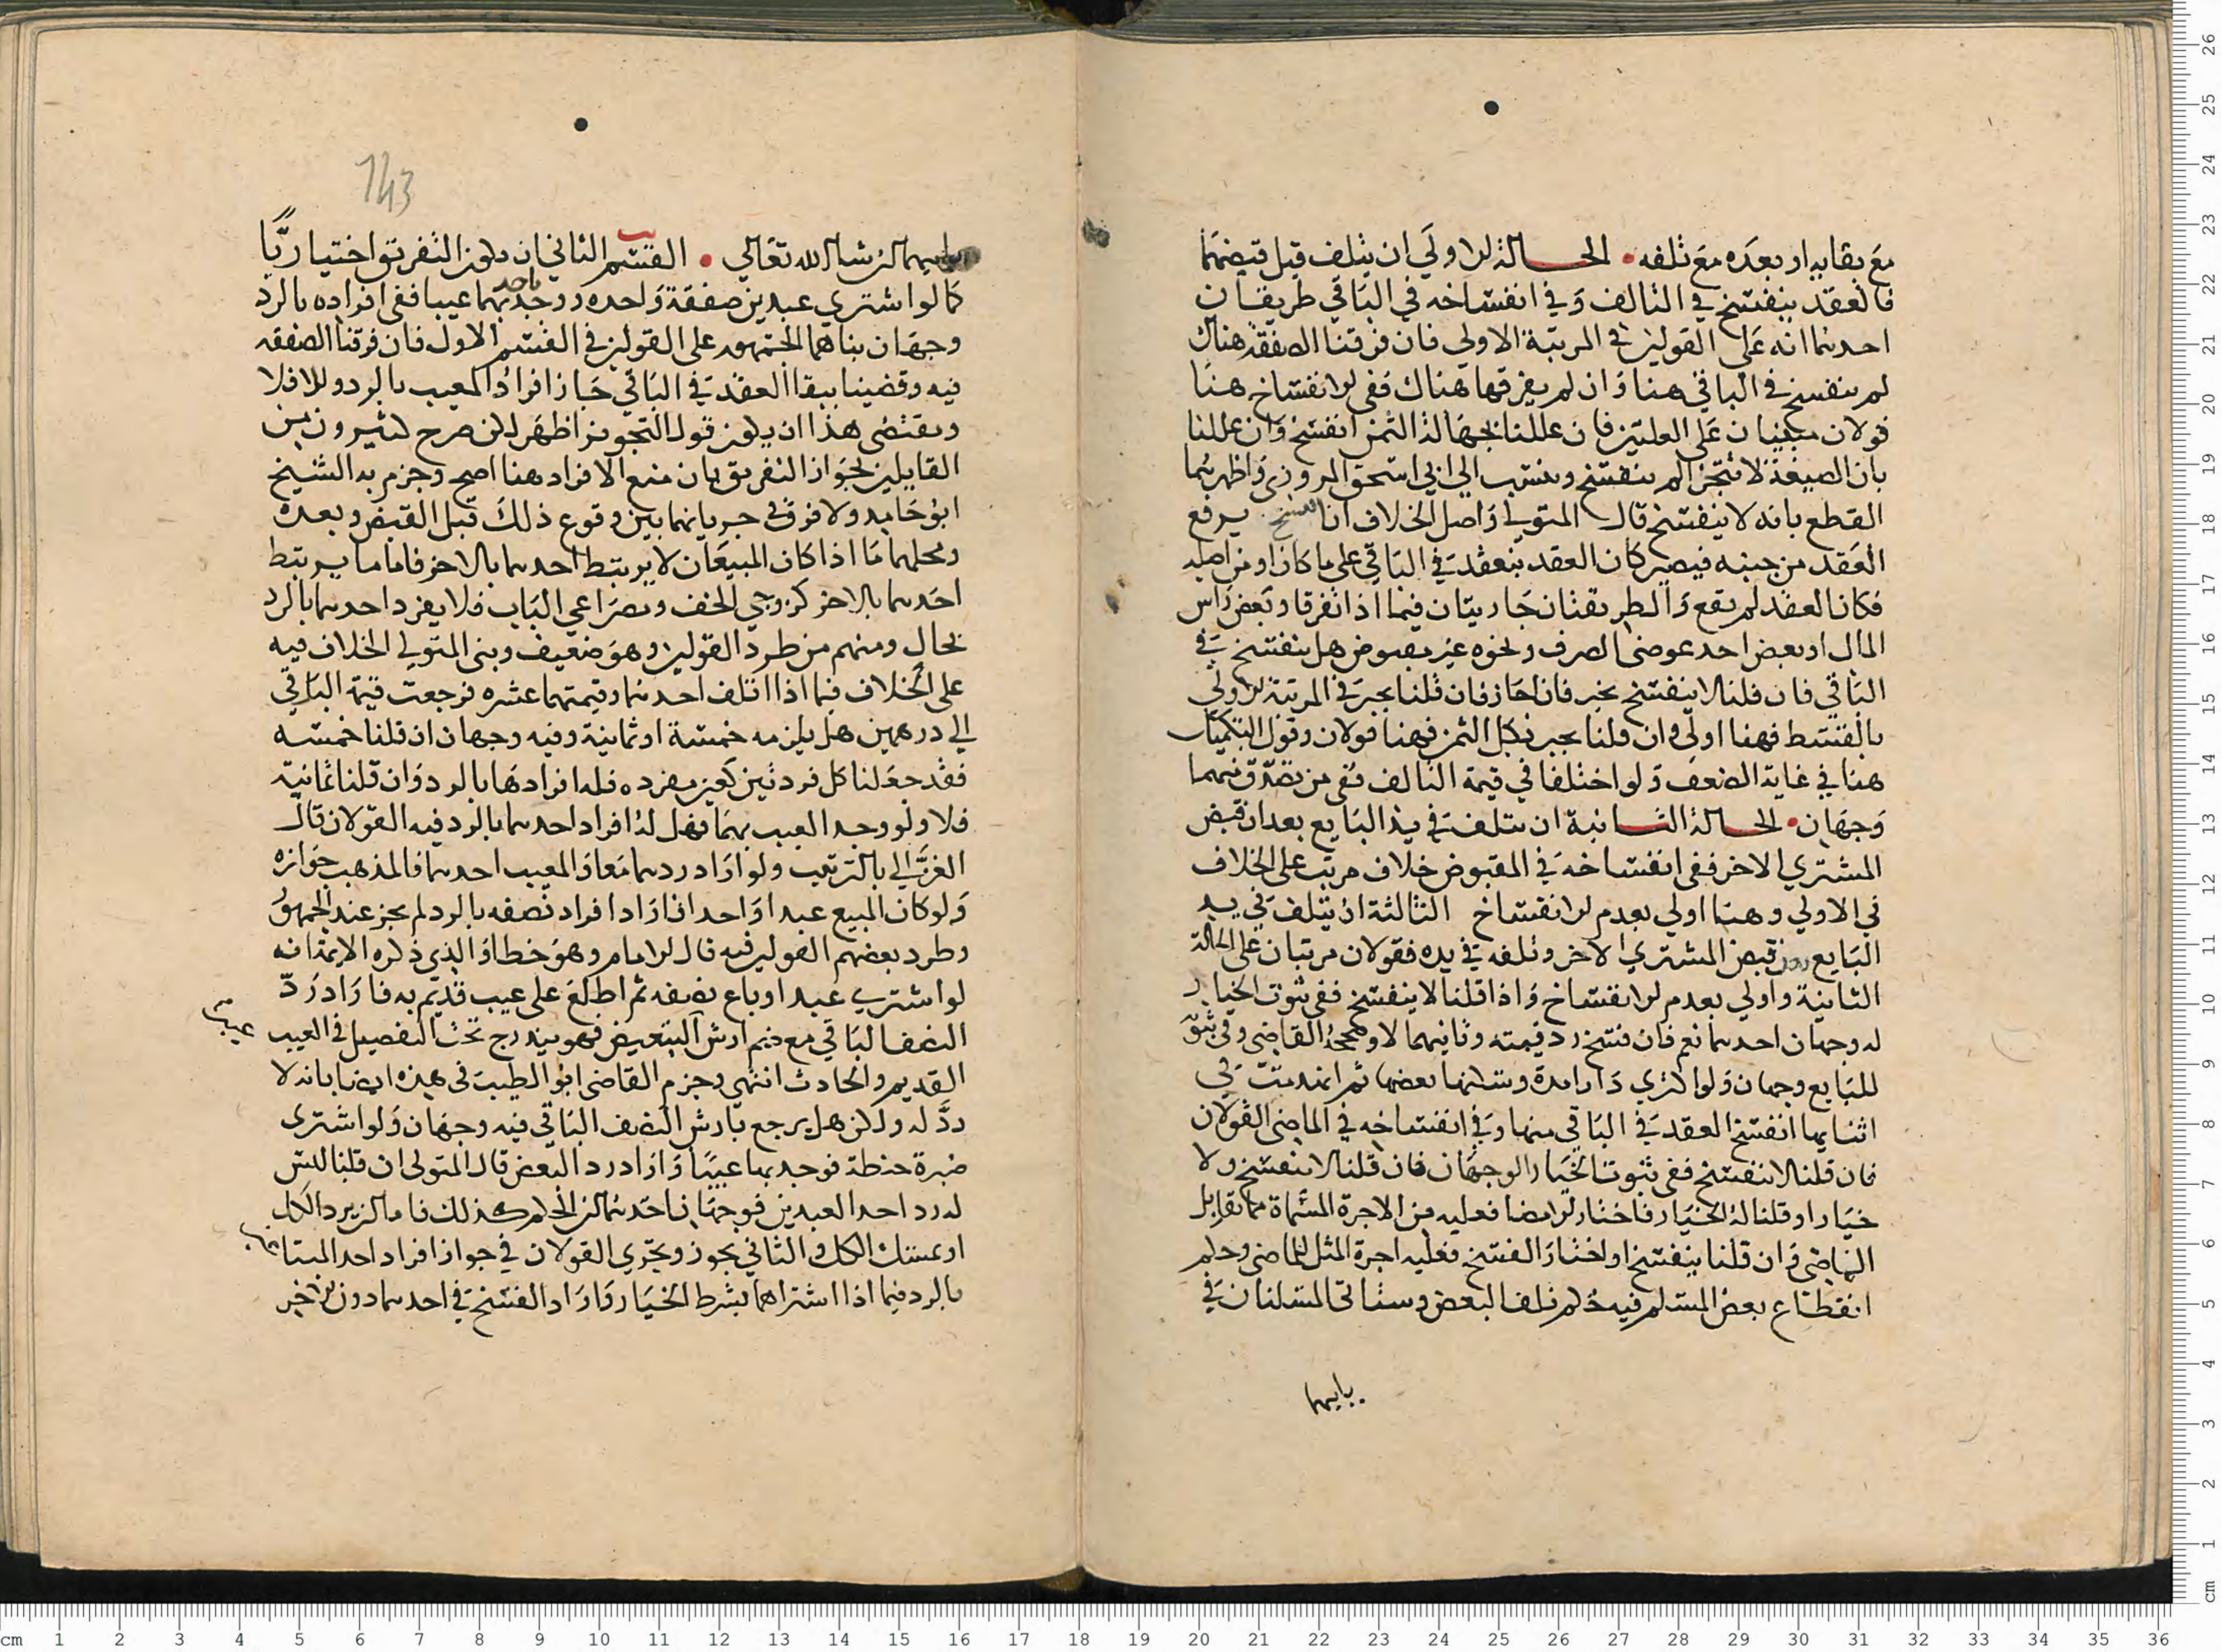 مع بقايه او بعده مع تلفه • الحالة الاولي ان يتلف قبل قبضهما
فالعقد ينفسخ في التالف وفي انفساخه في الباقي طريقان
احدهما انه على القولين في المرتبة الاولي فان فرقنا الصفقة هناك
لم ينفسخ في الباقي هنا وان لم يفرقها هناك ففي الانفساخ هنا
قولان مبنيان على العلتين فان عللنا بجهالة الثمن انفسخ وان عللنا
بان الصيغة لا تتجزا لم ينفسخ وينسب الي ابي اسحق المروزي واظهرهما
القطع بانه لا ينفسخ قال المتولي واصل الخلاف ان الفسخ يرفع
العقد من حينه فيصير كان العقد ينعقد في الباقي على ما كان او من اصله
فكان العقد لم يقع والطريقتان جاريتان فيما اذا تفرقا وبعض راس
المال او بعض احد عوضي الصرف ونحوه غير مقبوض هل ينفسخ في
الباقي فان قلنا لا ينفسخ بخير فان اجاز فان قلنا يجيز في المرتبة الاولي
بالقسط فهنا اولى وان قلنا يجيز بكل الثمن فهنا قولان وقول التكميل
هنا في غاية الضعف ولو اختلفا في قيمة التالف ففي من يصدق منهما
وجهان • الحالة الثانية ان يتلف في يد البايع بعد ان قبض
المشتري الاخر ففي انفساخه في المقبوض خلاف مرتب على الخلاف
في الاولي وهنا اولي بعدم الانفساخ الثالثة ان يتلف في يد
البايع دون قبض المشتري الاخر وتلفه في يده فقولان مرتبان على الحالة
الثانية واولي بعدم الانفساخ واذا قلنا لا ينفسخ ففي ثبوت الخيار
له وجهان احدهما نعم فان فسخ رد قيمته وثانيهما لا وصححه القاضي وفي ثبوته
للبايع وجهان ولو اكتري دارا مدة وسكنها بعضها ثم انهدمت في
اثنايها انفسخ العقد في الباقي منها وفي انفساخه في الماضي القولان
فان قلنا لا ينفسخ ففي ثبوت الخيار الوجهان فان قلنا لا ينفسخ ولا
خيار او قلنا له الخيار فاختار الامضا فعليه من الاجرة المسماة ما يقابل
الماضي وان قلنا ينفسخ او اختار الفسخ فعليه اجرة المثل للماضي وحكم
انقطاع بعض المسلم فيه حكم تلف البعض وستاتي المسلتان في
بابيهما
143
بابيهما ان شا الله تعالي • القسم الثاني ان يكون التفريق اختياريًا
كما لو اشتري عبدين صفقة واحدة ووجد باحدهما عيبا ففي افراده بالرد
وجهان بناهما الجمهور على القولين في القسم الاول فان فرقنا الصفقه
فيه وقضينا ببقا العقد في الباقي جاز افراد المعيب بالرد والا فلا
ويقتضي هذا ان يكون قول التجويز اظهر لكن صرح كثيرون من
القايلين بجواز التفريق بان منع الافراد هنا اصح وجزم به الشيخ
ابو حامد ولا فرق في جريانهما بين وقوع ذلك قبل القبض وبعده
ومحلهما ما اذا كان المبيعان لا يرتبط احدهما بالاخر فاما ما يرتبط
احدهما بالاخر كزوجي الخف ومصراعي الباب فلا يفرد احدهما بالرد
بحال ومنهم من طرد القولين وهو ضعيف وبنى المتولي الخلاف فيه
على الخلاف فيما اذا اتلف احدهما وقيمتهما عشره فرجعت قيمة الباقي
الي درهمين هل يلزمه خمسة او ثمانية وفيه وجهان ان قلنا خمسه
فقد جعلنا كل فرد كعين مفرده فله افرادها بالرد وان قلنا ثمانية
فلا ولو وجد العيب بهما فهل له افراد احدهما بالرد فيه القولان قال
الغزالي بالترتيب ولو اراد ردهما معا والمعيب احدهما فالمذهب جوازه
ولو كان المبيع عبدا واحدا فاراد افراد نصفه بالرد لم يجز عند الجمهور
وطرد بعضهم القولين فيه قال الامام وهو خطا والذي ذكره الايمة انه
لو اشتري عبدا وباع نصفه ثم اطلع على عيب قديم به فاراد رد
النصف الباقي مع ضم ارش التبعيض فهو يندرج تحت التفصيل في العيب
القديم والحادث انتهي وجزم القاضي ابو الطيب في هذه ايضا بانه لا
رد له ولكن هل يرجع بارش النصف الباقي فيه وجهان ولو اشترى
صبرة حنطة فوجد بها عيبًا واراد رد البعض قال المتولي ان قلنا ليس
له رد احد العبدين فوجهان احدهما ان الحكم كذلك فاما ان يرد الكل
او يمسك الكل والثاني يجوز ويجري القولان في جواز افراد احد المبتاعين
بالرد فيما اذا اشتراهما بشرط الخيار واراد الفسخ في احدهما دون الاخر